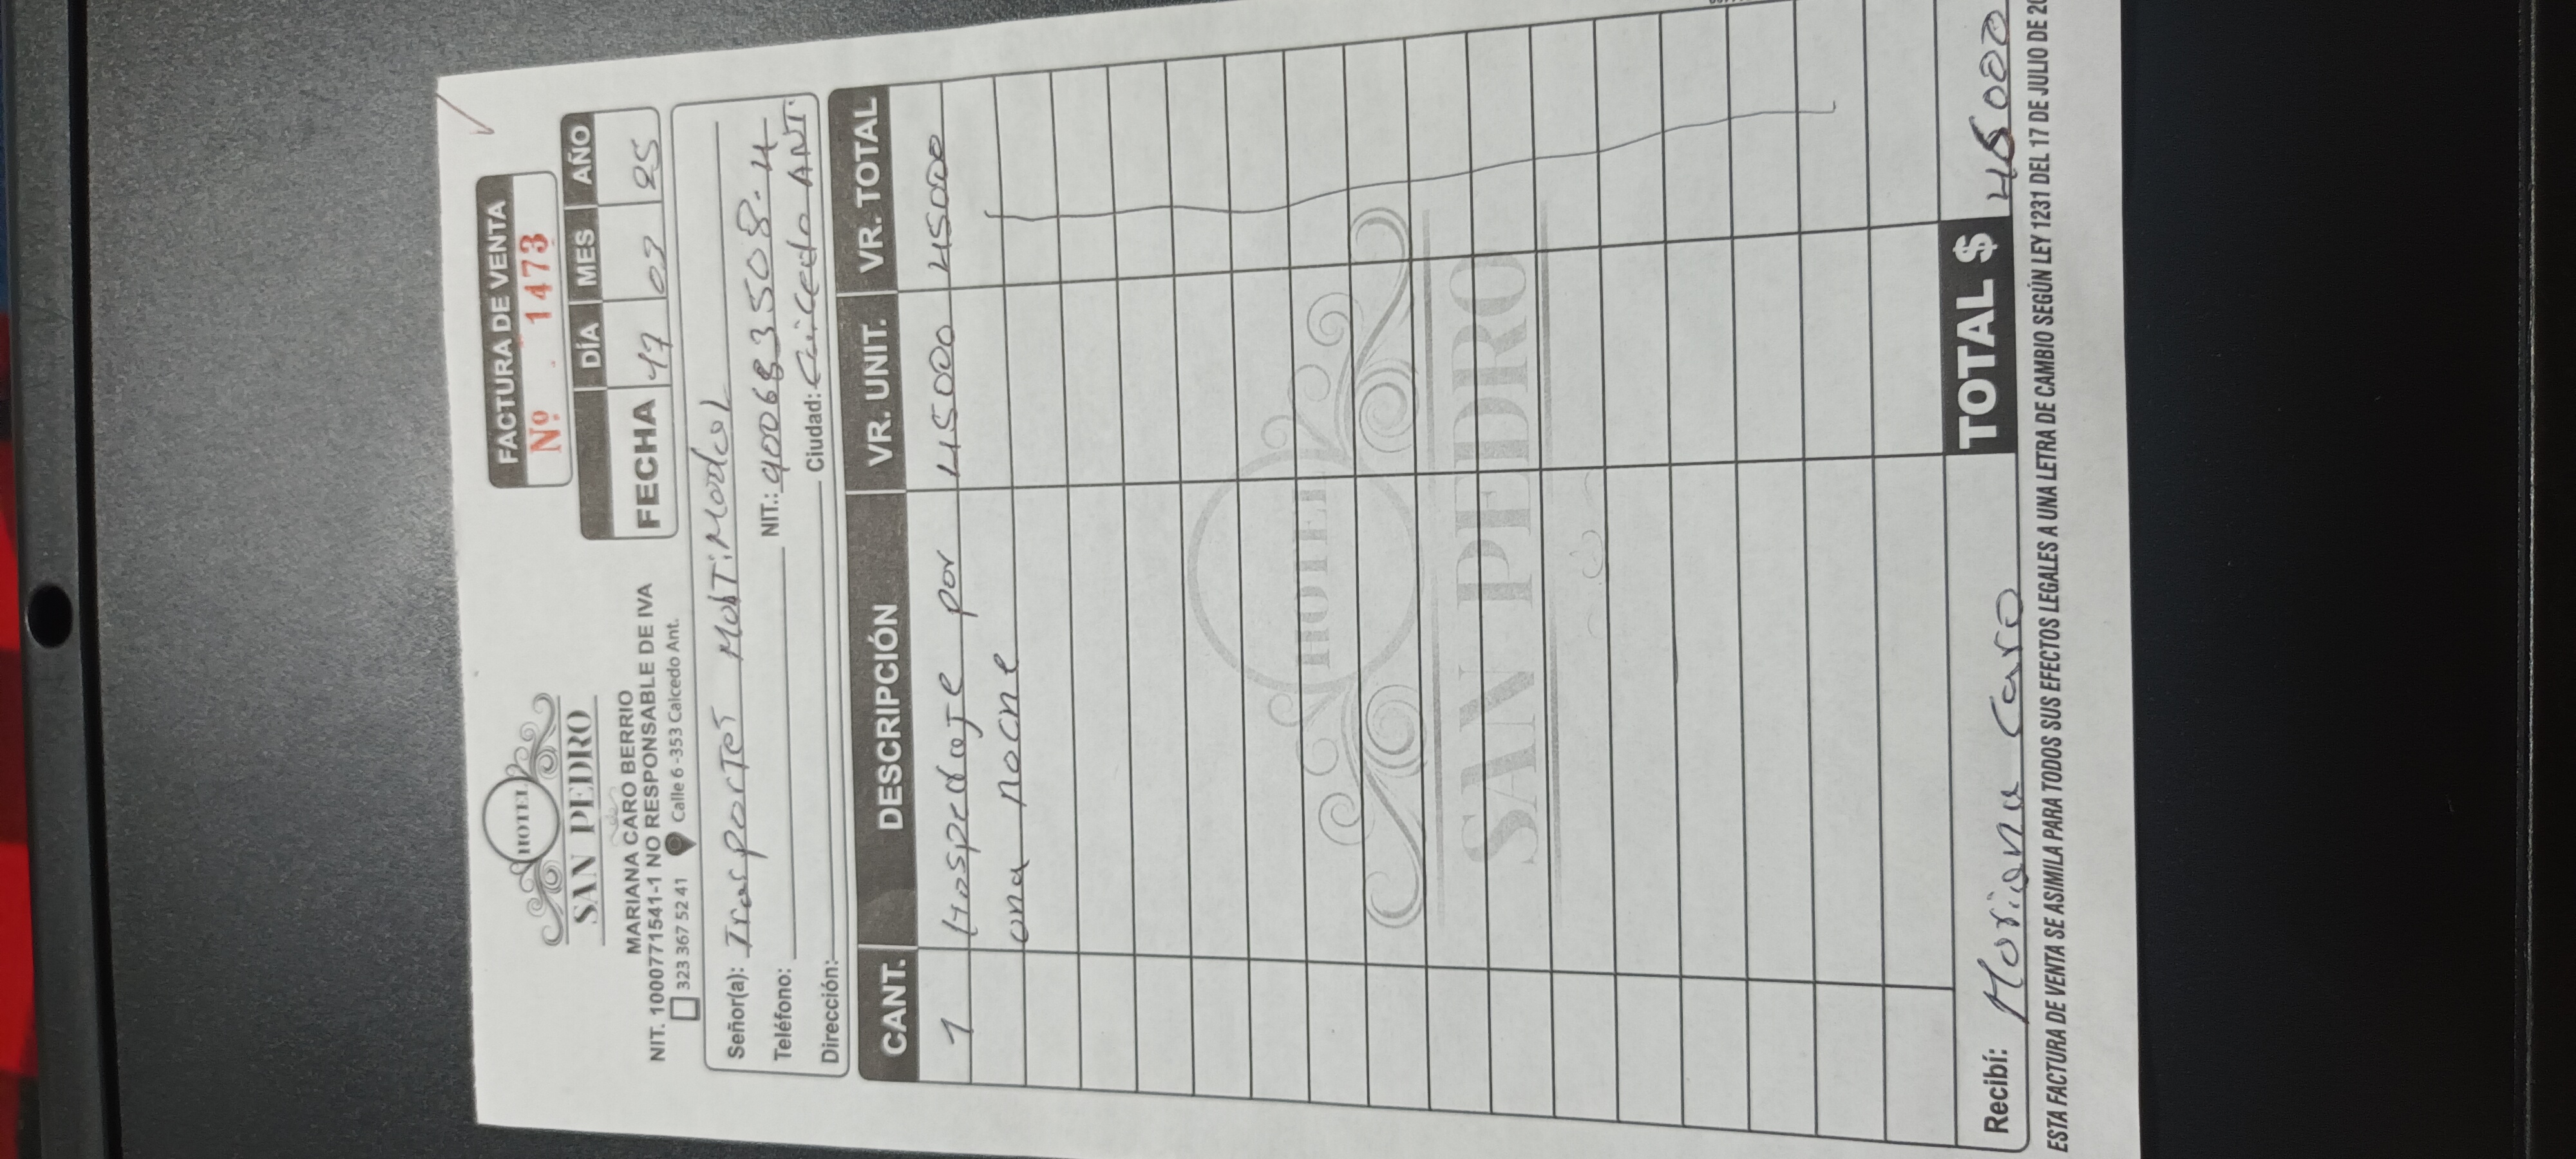 HOTEL
SAN PEDRO
MARIANA CARO BERRIO
NIT. 1000771541-1 NO RESPONSABLE DE IVA
323 367 52 41 Calle 6 -353 Caicedo Ant.
FACTURA DE VENTA
Nº 1473
DÍA MES AÑO
FECHA 17 09 25
Señor(a): Trasportes MultiModal
Teléfono: NIT.: 900683508-4
Dirección: Ciudad: Caicedo ANT.
CANT. DESCRIPCIÓN VR. UNIT. VR. TOTAL
1 Hospedaje por 45000 45000
una noche
HOTEL
SAN PEDRO
Recibí: Mariana Caro TOTAL $ 45000
ESTA FACTURA DE VENTA SE ASIMILA PARA TODOS SUS EFECTOS LEGALES A UNA LETRA DE CAMBIO SEGÚN LEY 1231 DEL 17 DE JULIO DE 20